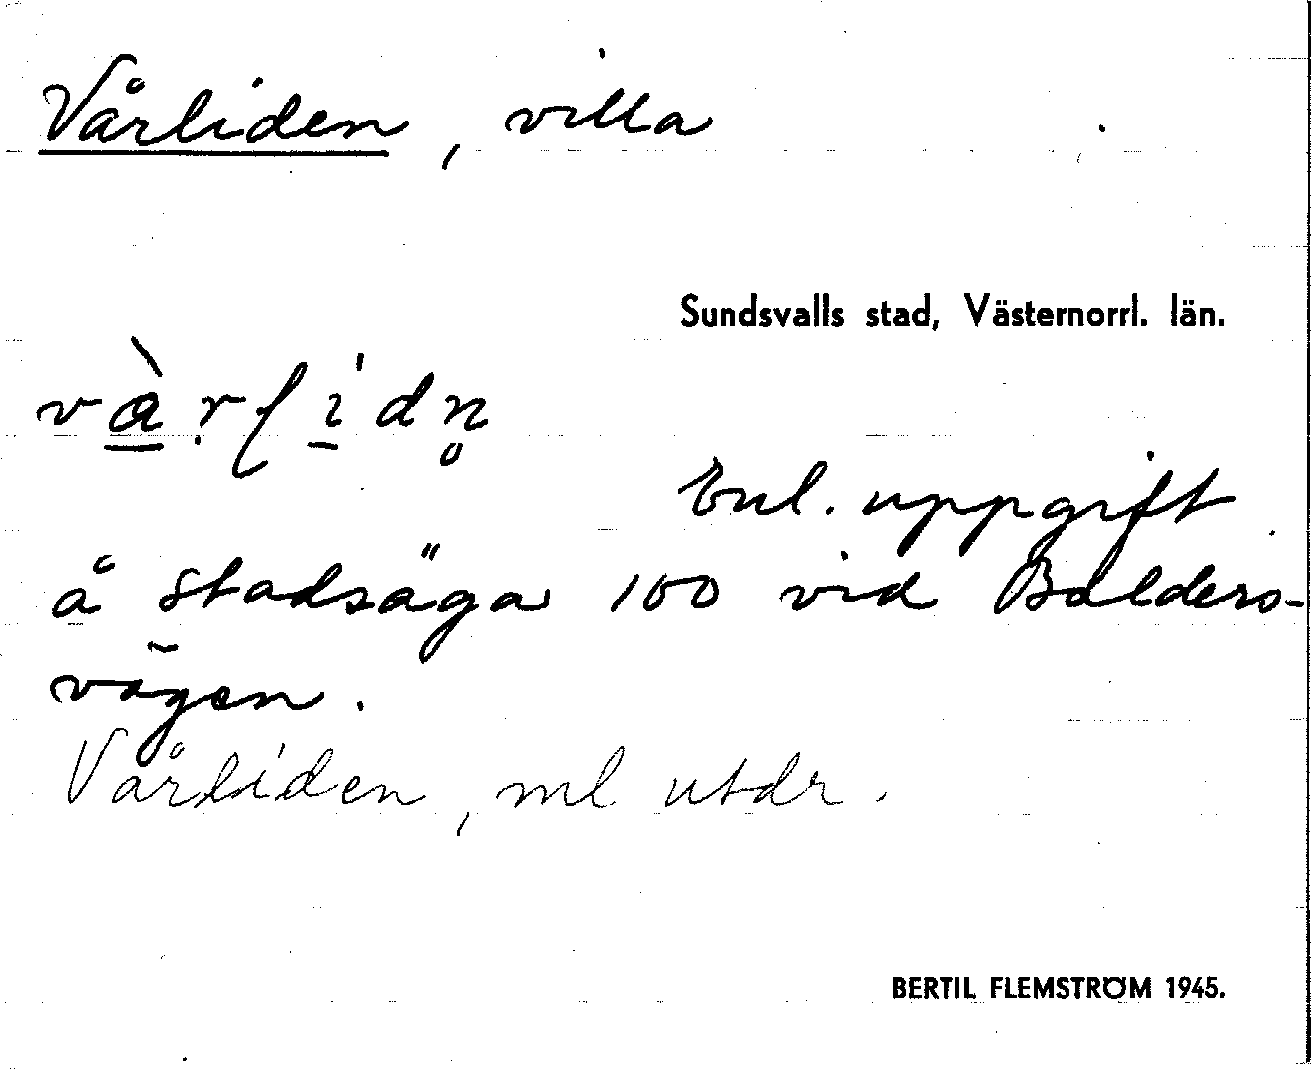 Vårliden, villa
Sundsvalls stad, Västernorrl. län.
Enl. uppgift
å stadsäga 100 vid Balders-
vägen.
Vårliden, ml utdr.
BERTIL FLEMSTRÖM 1945.